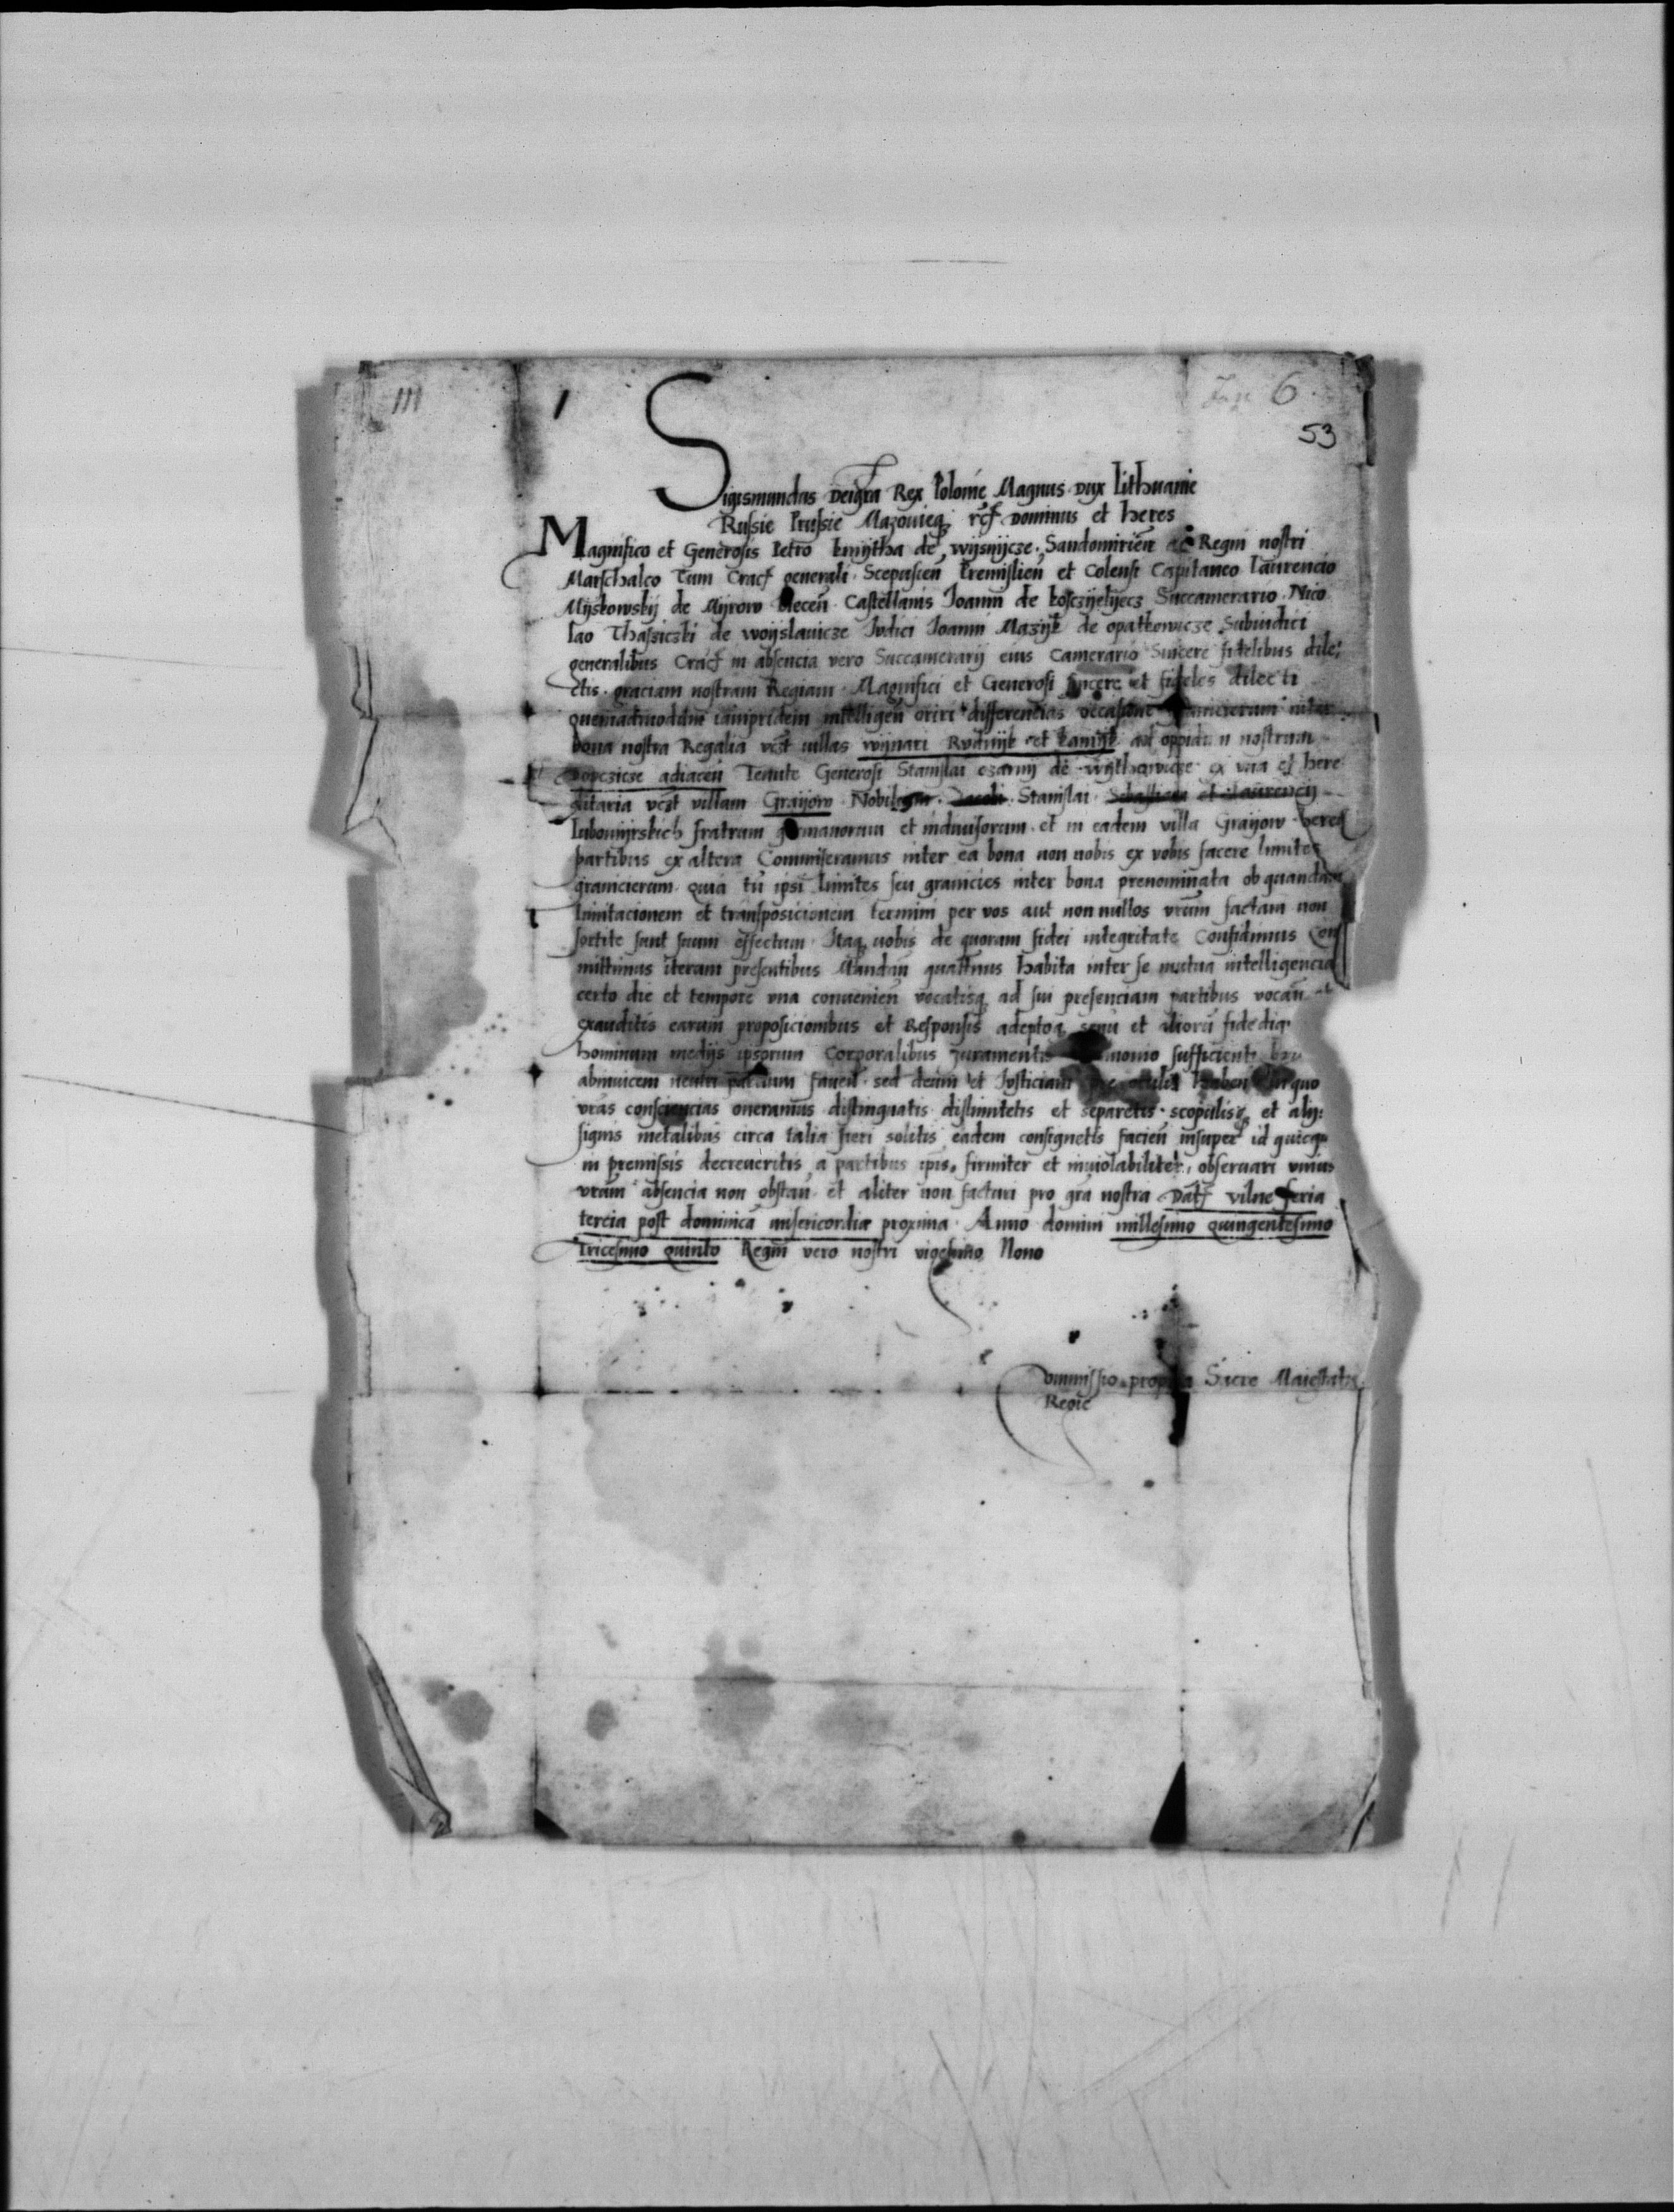 111
6
53
Sigismundus Dei gra Rex Polonie Magnus Dux Lithuanie
Russie Prussie Mazouieq rcf Dominus et heres
Magnifico et Generosis Petro kmytha de wysnycze Sandomirien ac Regni nostri
Marschalco Tum Cracf generali Scepusien Premislien et Colensi Capitaneo Laurencio
Myskowskij de Myrow Biecen Castellanis Joanni de kosczyelyecz Succamerario Nico
lao Thassiczki de woyslauicze Judici Joanni Mazyk de opatkowicze Subiudici
generalibus Cracf in absencia vero Succamerarij eius Camerario Sincere fidelibus dile:
ctis graciam nostram Regiam Magnifici et Generosi sincere et fideles dilecti
quemadmodum iampridem intelligen oriri differencias occasione granicierum inter
bona nostra Regalia vcst villas wynari Rudnyk et kamyk ad oppidum nostrum
adiacen Tenute Generosi Stanislai czarny de wythowicze ex vna et here
ditaria vcst villam Grayow Nobilium Jacobi Stanislai Sebastiani et Laurencij
Lubomyrskich fratrum germanorum et indiuisorum et in eadem villa Grayow hered
partibus ex altera Commiseramus inter ea bona non nobis ex vobis facere limites
granicierum quia tn ipsi limites seu granicies inter bona prenominata ob quandam
limitacionem et transposicionem termini per vos aut non nullos vrum factam non
sortite sunt suum effectum Itaq vobis de quorum fidei integritate Confidimus Com
mittimus iterum presentibus Mandan quatinus habita inter se mutua intelligencia
certo die et tempore vna conuenien vocatisq ad sui presenciam partibus vocan et
exauditis earum proposicionibus et Responsis adeptoq senu et aliorum fidedig
hominum medijs ipsorum Corporalibus Juramentis sufficienti
abinuicem neutri partium fauen sed deum et Justiciam pre oculis haben in quo
vras consciencias oneramus distinguatis dislimitetis et separetis scopulisq et alijs
signis metalibus circa talia fieri solitis eadem consignetis facien insuper id quicq
in premissis decreueritis a partibus ipis firmiter et inuiolabiliter obseruari vnius
vrum absencia non obstan et aliter non facturi pro gra nostra Datf vilne feria
tercia post dominica misericordiae proxima Anno domini millesimo quingentesimo
Tricesimo quinto Regni vero nostri vigesimo Nono
Commissio propria Sacre Maiestatis
Regie